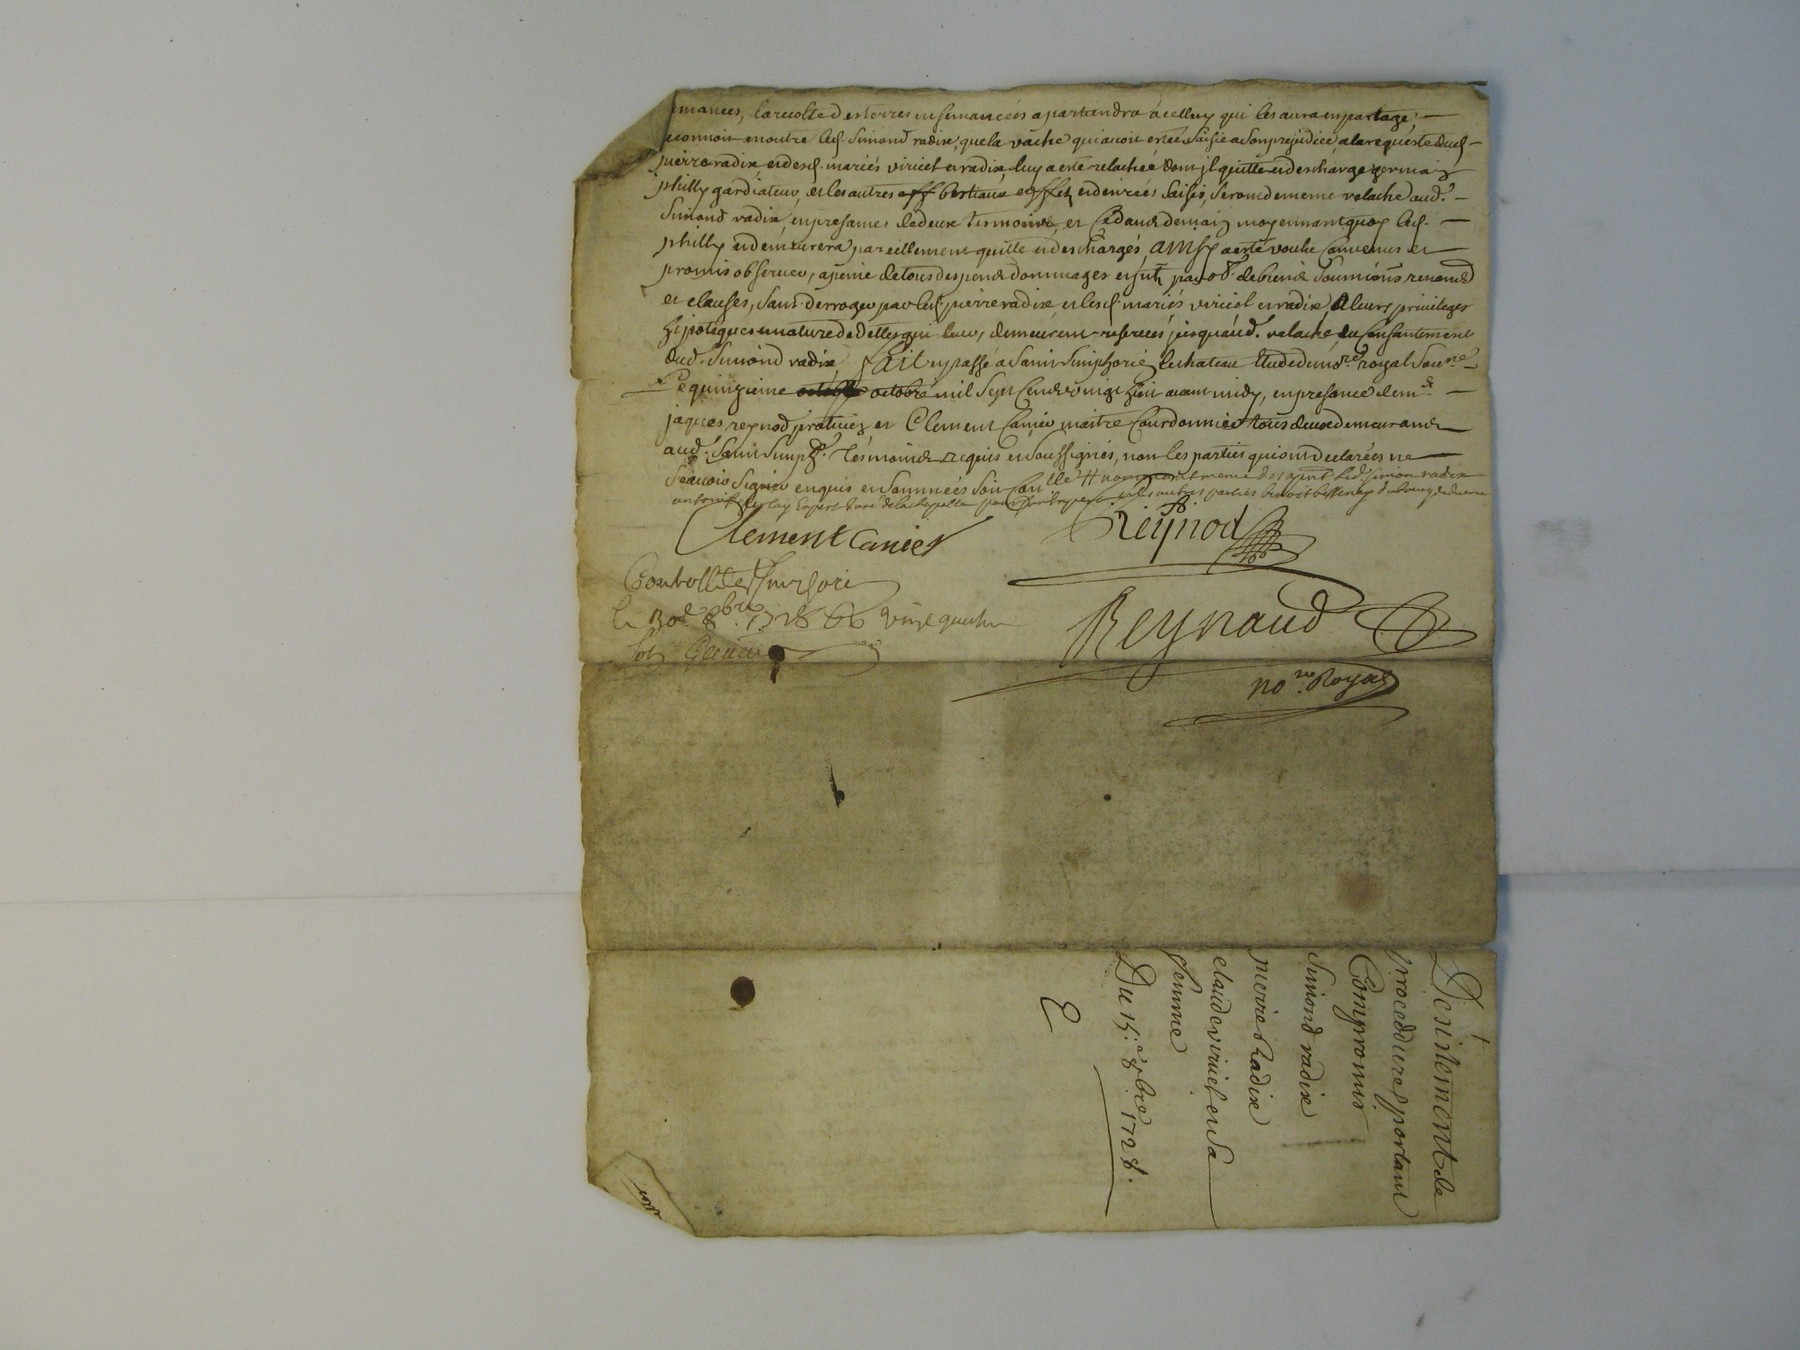 emancés, la recolte desterres ensemancées apartiendra a celluy qui les aura en partage,
reconnoit enoutre led. Simond radix, que la vache qui avoit ertée saisie a son prejudice, a la requeste dud.
pierre radix et desd. mariés viriet et radix, luy a esté relachée dont jl quitte et descharge germaiz
philly gardiateur, et les autres eff bestiaux et effetz et denrées saisis, seront de meme relaché aud.
Simond radix, en presames de deux temoins, et Cedans demaiz moyennant quoy led.
philly en demeurera pareillement quitte et deschargés, ainsy a esté voulu Convenus et
promis observer, a peine de tous despens dommages et jnt. par ob. de biens Soumissions renond
et clauses, sans derroger par led. pierre radix et lesd. mariés viriet et radix, a leurs privileges
hipoteques et nature de dettes qui leur demeurent reservées jusquaud. relache du Consantement
dud. Simond radix. fait et passé a Saint Simphorie le chateau Etude du no.re royal Sou.né
Le quinzieme octobre mil sept Cent vingt huit avant midy, en presance de m.e
jaques reynod praticiez et Clement Canier maitre Courdonnier tous deux demeurant
aud. Saint Simph. tesmoins requis et soussignés, non les parties qui ont declarées ne
sçavoir signer enquis et sommées
Clement Canier
Reÿnod
Controllé
le 8bre 1728 vingt quatre
Reynaud
no.re Royal
Desistement de
proceddures portant
Compromis
Simond radix
pierre Radix
claude viriet et sa
femme
Du 15e 8bre 1728.